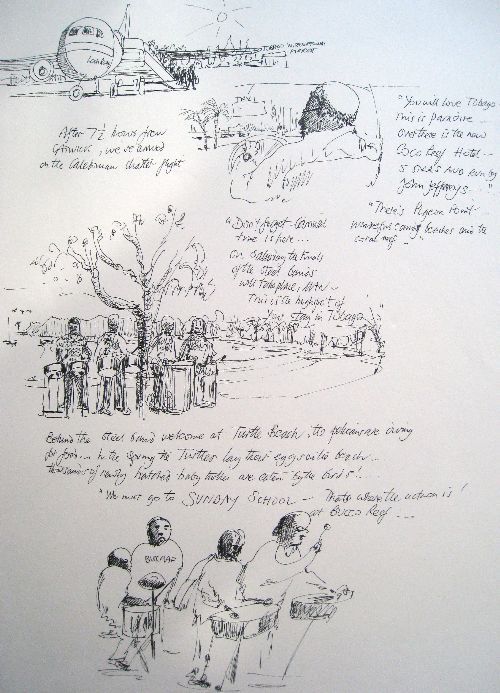 TOBAGO INTERNATIONAL
AIRPORT
After 7½ hours from
GATWICK, we've arrived
on the Caledonian charter flight
TAXI
"You will love Tobago
This is paradise
Over there is the new
Coco Reef Hotel
5 stars and run by
John Jefferys...
"There's Pigeon Point
wonderful beaches and the
coral reef
"Don't forget Carnival
time is here...
on Saturday the finals
of the steel bands
will take place,
This is the highlight of
your stay in Tobago"
Behind the steel band welcome at Turtle Beach, the pelicans are diving
for food... In the spring the Turtles lay their eggs on the beach...
thousands of newly hatched baby turtles are eaten by the birds!...
"We must go to SUNDAY SCHOOL - That's where the action is!
at Bucco Reef...